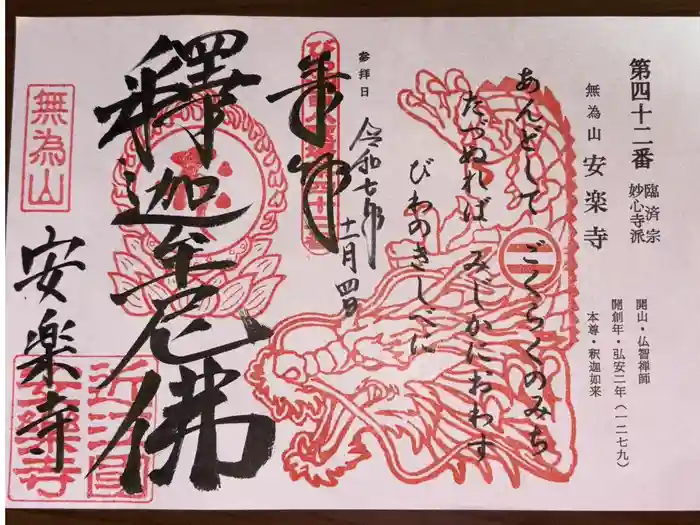 第四十二番
臨済宗
妙心寺派
無為山 安楽寺
開山・仏智禅師
開創年・弘安二年(一二七九)
本尊・釈迦如来
あんどして ごくらくのみち
たづぬれば みじかにおわす
びわのきしべに
参拝日
令和七年
十一月四日
奉拝
釋迦牟尼佛
無為山
安楽寺
近江國
安樂寺